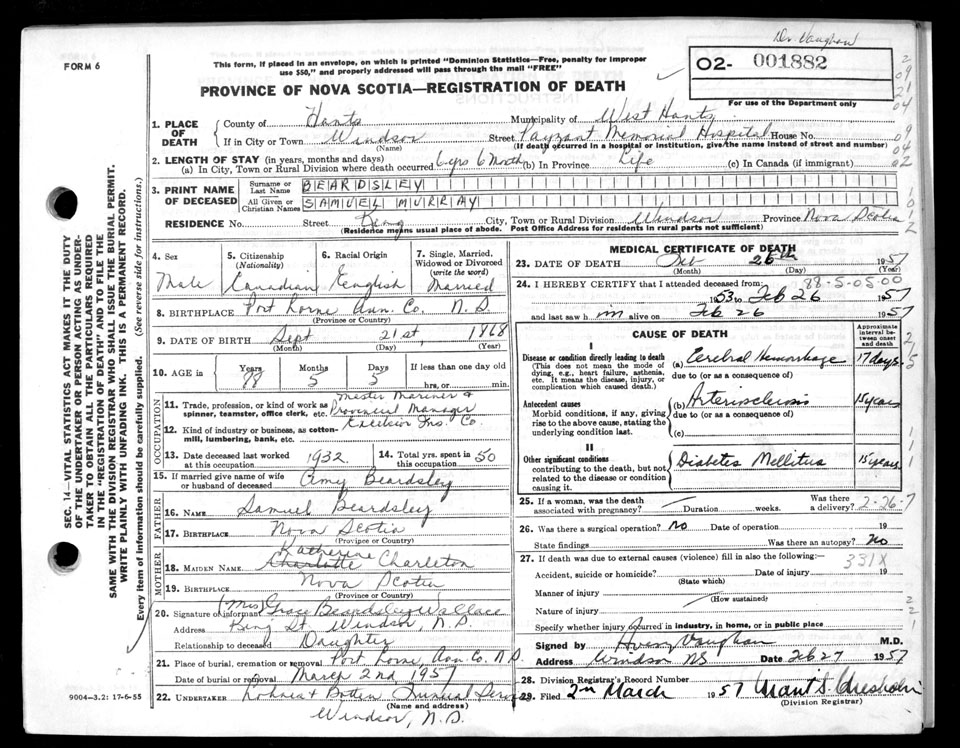 Dr. Vaughan
FORM 6
This form, if placed in an envelope, on which is printed "Dominion Statistics—Free, penalty for improper
use $50," and properly addressed will pass through the mail "FREE"
O2- 001882
For use of the Department only
PROVINCE OF NOVA SCOTIA—REGISTRATION OF DEATH
1. PLACE OF DEATH
County of Hants Municipality of West Hants
If in City or Town Windsor Street Payzant Memorial Hospital House No.
(Name) (If death occurred in a hospital or institution, give the name instead of street and number)
2. LENGTH OF STAY (in years, months and days)
(a) In City, Town or Rural Division where death occurred 6 yrs 6 Month (b) In Province Life (c) In Canada (if immigrant)
3. PRINT NAME OF DECEASED
Surname or Last Name BEARDSLEY
All Given or Christian Names SAMUEL MURRAY
RESIDENCE No. Street King City, Town or Rural Division Windsor Province Nova Scotia
(Residence means usual place of abode. Post Office Address for residents in rural parts not sufficient)
4. Sex
Male
5. Citizenship (Nationality)
Canadian
6. Racial Origin
English
7. Single, Married, Widowed or Divorced (write the word)
Married
8. BIRTHPLACE Port Lorne Ann. Co. N.S.
(Province or Country)
9. DATE OF BIRTH Sept 21st, 1868
(Month) (Day) (Year)
10. AGE in Years Months Days If less than one day old
5 5 hrs, or min.
OCCUPATION
11. Trade, profession, or kind of work as spinner, teamster, office clerk, etc. Master Mariner & Provincial Manager
12. Kind of industry or business, as cotton-mill, lumbering, bank, etc. Excelsior Ins. Co.
13. Date deceased last worked at this occupation 1932
14. Total yrs. spent in this occupation 50
15. If married give name of wife or husband of deceased Amy Beardsley
FATHER
16. NAME Samuel Beardsley
17. BIRTHPLACE Nova Scotia
(Province or Country)
MOTHER
Katherine
18. MAIDEN NAME Charlotte Charleton
19. BIRTHPLACE Nova Scotia
(Province or Country)
20. Signature of informant (Mrs) Grace Beardsley Wallace
Address King St. Windsor, N.S.
Relationship to deceased Daughter
21. Place of burial, cremation or removal Port Lorne, Ann. Co. N.S.
Date of burial or removal March 2nd 1957
22. UNDERTAKER
(Name and address)
Windsor, N.S.
9004—3.2: 17-6-55
SEC. 14—VITAL STATISTICS ACT MAKES IT THE DUTY
OF THE UNDERTAKER OR PERSON ACTING AS UNDER-
TAKER TO OBTAIN ALL THE PARTICULARS REQUIRED
IN THE "REGISTRATION OF DEATH" AND TO FILE THE
SAME WITH THE DIVISION REGISTRAR WHO SHALL ISSUE THE BURIAL PERMIT.
WRITE PLAINLY WITH UNFADING INK. THIS IS A PERMANENT RECORD.
Every item of information should be carefully supplied. (See reverse side for instructions.)
MEDICAL CERTIFICATE OF DEATH
23. DATE OF DEATH 26th 1957
(Month) (Day) (Year)
24. I HEREBY CERTIFY that I attended deceased from: 88-5-05-00
1953 to Feb 26 1957
and last saw him alive on Feb 26 1957
CAUSE OF DEATH
Approximate interval between onset and death
I
Disease or condition directly leading to death (a) Cerebral Hemorrhage 17 days.
(This does not mean the mode of dying, e.g., heart failure, asthenia, etc. It means the disease, injury, or complication which caused death.)
due to (or as a consequence of)
Antecedent causes (b) Arteriosclerosis 15 years
Morbid conditions, if any, giving rise to the above cause, stating the underlying condition last.
due to (or as a consequence of)
(c)
II
Other significant conditions Diabetes Mellitus 15 years
contributing to the death, but not related to the disease or condition causing it.
25. If a woman, was the death associated with pregnancy? Duration weeks. Was there a delivery? 2-26-7
26. Was there a surgical operation? No Date of operation 19
State findings Was there an autopsy? No
27. If death was due to external causes (violence) fill in also the following:— 331X
Accident, suicide or homicide? Date of injury 19
(State which)
Manner of injury
(How sustained)
Nature of injury
Specify whether injury occurred in industry, in home, or in public place
Signed by Avery Vaughan M.D.
Address Windsor NS Date Feb 27 1957
28. Division Registrar's Record Number
29. Filed 2nd March 1957 Grant S. Chisholm
(Division Registrar)